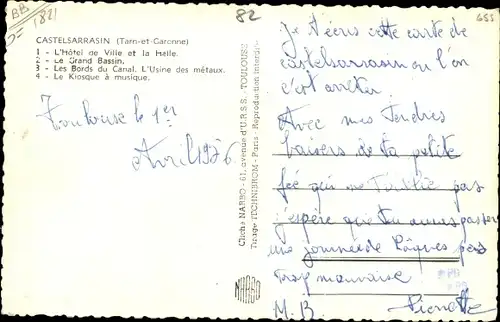 BB
82
82
655
CASTELSARRASIN (Tarn-et-Garonne)
1 - L'Hôtel de Ville et la Halle.
2 - Le Grand Bassin.
3 - Les Bords du Canal. L'Usine des métaux.
4 - Le Kiosque à musique.
Toulouse le 1er
Avril 1976
Cliché NARBO - 61, avenue d'U.R.S.S. - TOULOUSE
Tirage TECHNIBROM - Paris - Reproduction interdite
NARBO
Je t'écris cette carte de
castelsarrasin ou l'on
c'est arrêter.
Avec mes Tendres
baisers de ta petite
fée qui ne t'oublie pas
j'espère que tu auras passer
une journée de Pâques pas
trop mauvaise
M. B. Pierrette